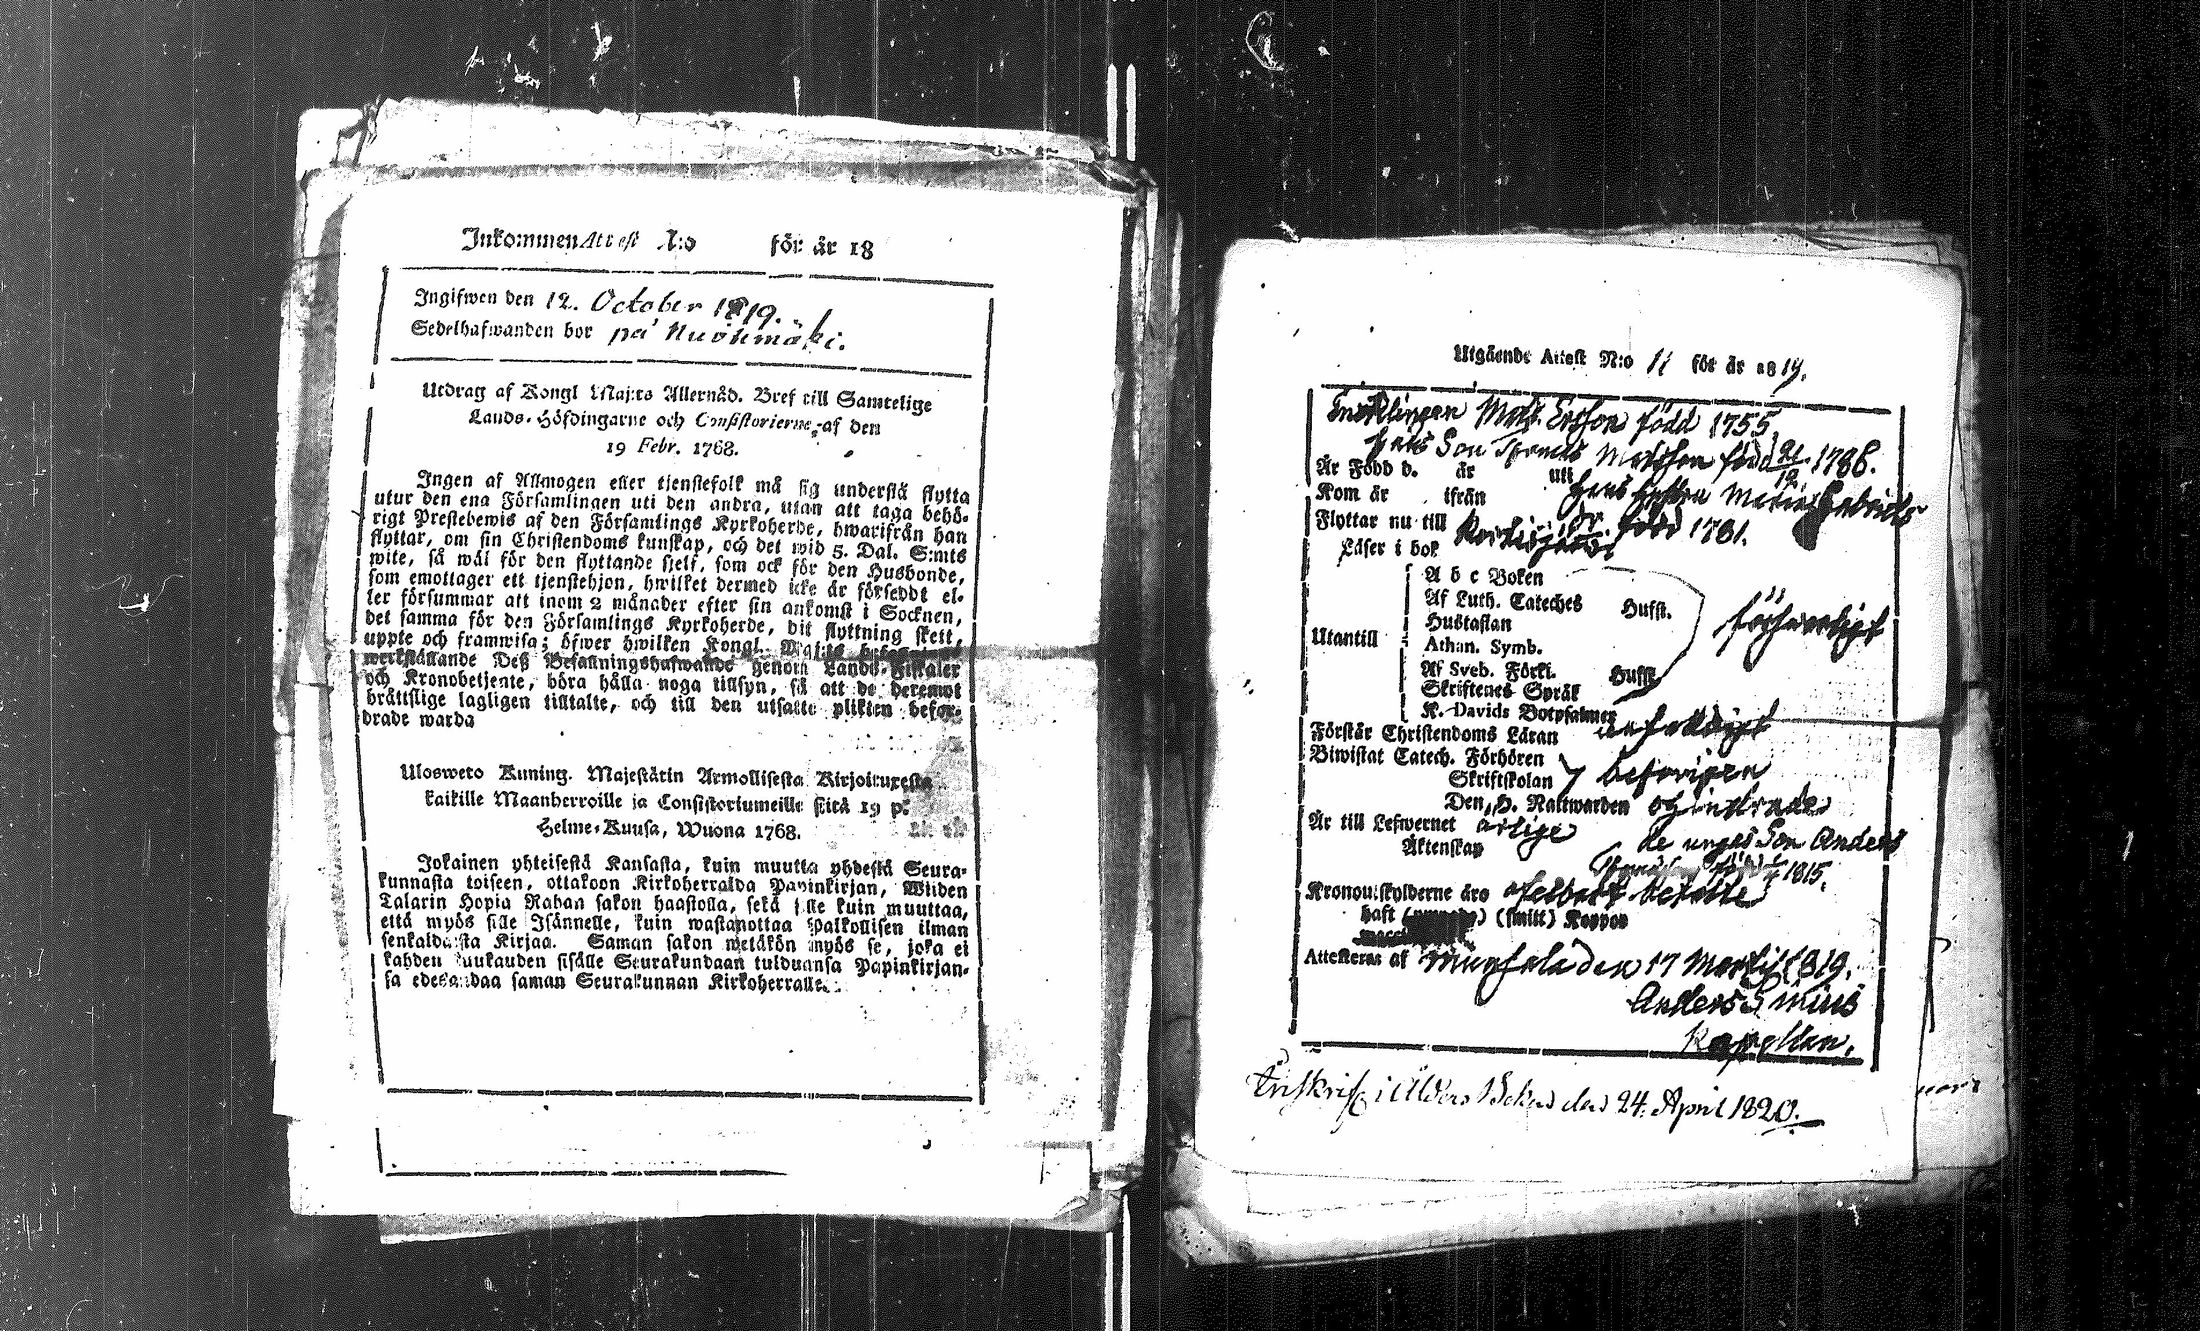 Inkommen Attest N:o för år 18
Ingifwen den 12. October 1819.
Sedelhafwanden bor på
Utdrag af Kongl Maj:ts Allernåd. Bref till Samtelige
Lands-Höfdingarne och Consistorierne, af den
19 Febr. 1768.
Ingen af Allmogen eller tjenstefolk må sig understå flytta
utur den ena Församlingen uti den andra, utan att taga behö-
rigt Prestebewis af den Församlings Kyrkoherde, hwarifrån han
flyttar, om sin Christendoms kunskap, och det wid 5. Dal. S:mts
wite, så wäl för den flyttande sielf, som ock för den Husbonde,
som emottager ett tjenstehjon, hwilket dermed icke är försedt el-
ler försummar att inom 2 månader efter sin ankomst i Socknen,
det samma för den Församlings Kyrkoherde, dit flyttning skett,
uppte och framwisa; öfwer hwilken Kongl. Maj:ts
werkställande Deß Befallningshafwande genom Lands-Fiskaler
och Kronobetjente, böra hålla noga tillsyn, så att de deremot
bråttslige lagligen tilltalte, och till den utsatte plikten befor-
drade warda
Ulosweto Kuning. Majestätin Armollisesta Kirjoituxesta
kaikille Maanherroille ja Consistoriumeille sitä 19 p:
Helme-Kuusa, Wuona 1768.
Jokainen yhteisestä Kansasta, kuin muutta yhdestä Seura-
kunnasta toiseen, ottakoon Kirkoherralda Papinkirjan, Wiiden
Talarin Hopia Rahan sakon haastolla, sekä se kuin muuttaa,
että myös sille Isännelle, kuin wastanottaa Palkollisen ilman
senkaldaista Kirjaa. Saman sakon wetäkön myös se, joka ei
kahden kuukauden sisälle Seurakundaan tulduansa Papinkirjan-
sa edesandaa saman Seurakunnan Kirkoherralle.
Utgående Attest N:o 11 för år 1819.
Inhklingen Mats Ersson född 1755
hans Son Thomas Matsson född 21/12 1786.
Är Född d. år uti hans hustru Maria Gabriels
Kom år ifrån dr född 1781.
Flyttar nu till
Läser i bok
A b c Boken
Af Luth. Cateches Hufst.
Hustaflan
Utantill Athan. Symb. försvarligt
Af Sveb. Förkl. Hufst.
Skriftenes Språk
K. Davids Botpsalmer
Förstår Christendoms Läran enfaldigt
Biwistat Catech. Förhören
Skriftskolan
Den H. Nattwarden
Är till Lefwernet ärlige de ungas Son Anders
Äktenskap Thomasson född 1815.
Kronoutskylderne äro betalte
haft (smitt) Koppor
Attesteras af den 17 Martii 1819.
Anders
Kapellan.
Inskrifc i Ålders Boken den 24. April 1820.